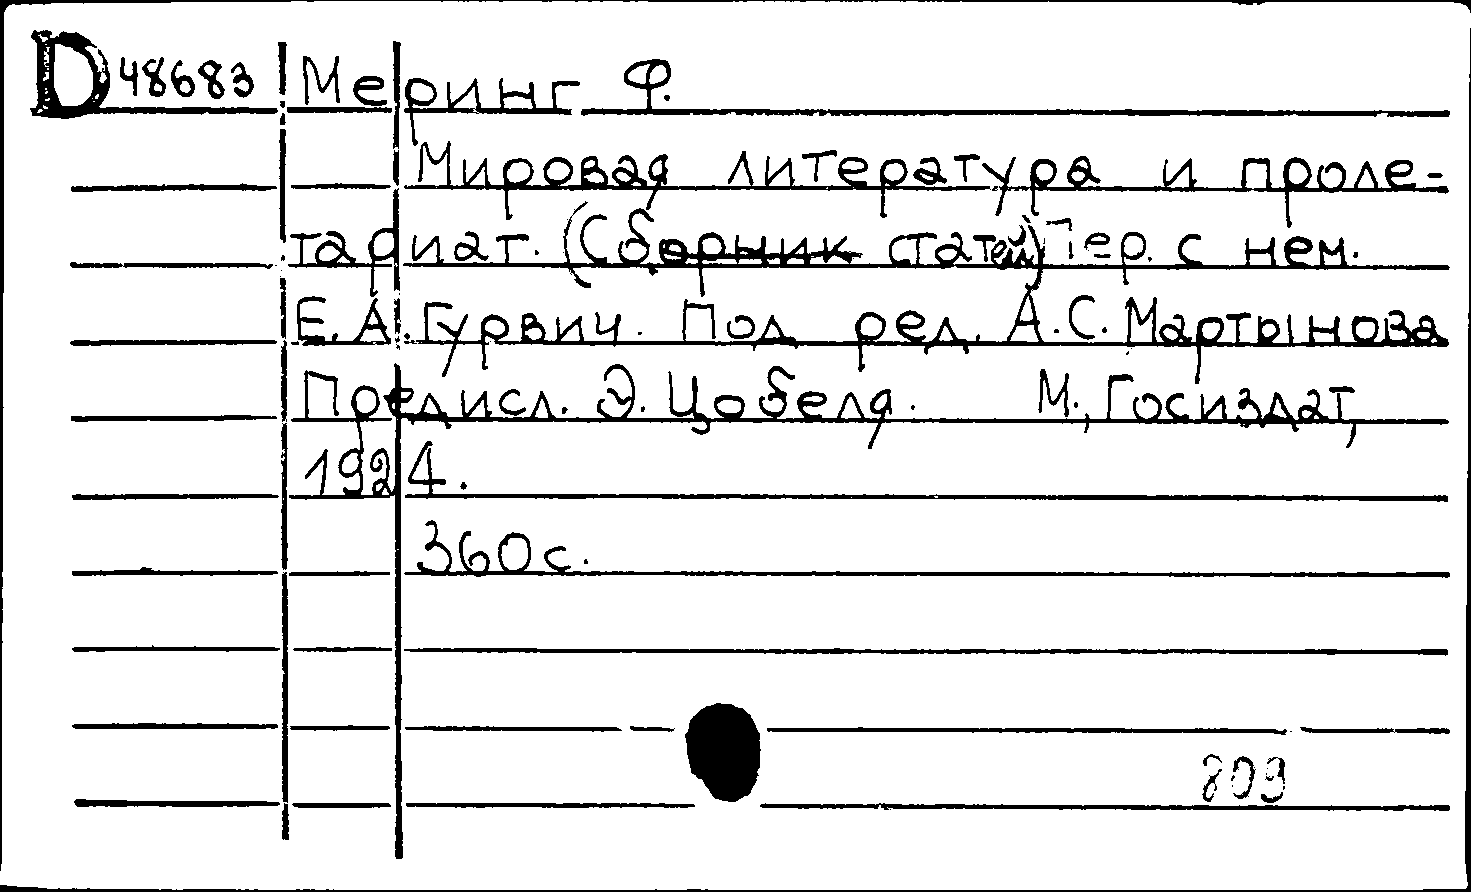 D 48683 Меринг Ф.
Мировая литература и проле-
тариат. (Сборник статей) Пер. с нем.
Е. А. Гурвич. Под ред. А. С. Мартынова
Предисл. Э. Цобеля. М., Госиздат,
1924.
360 с.
809